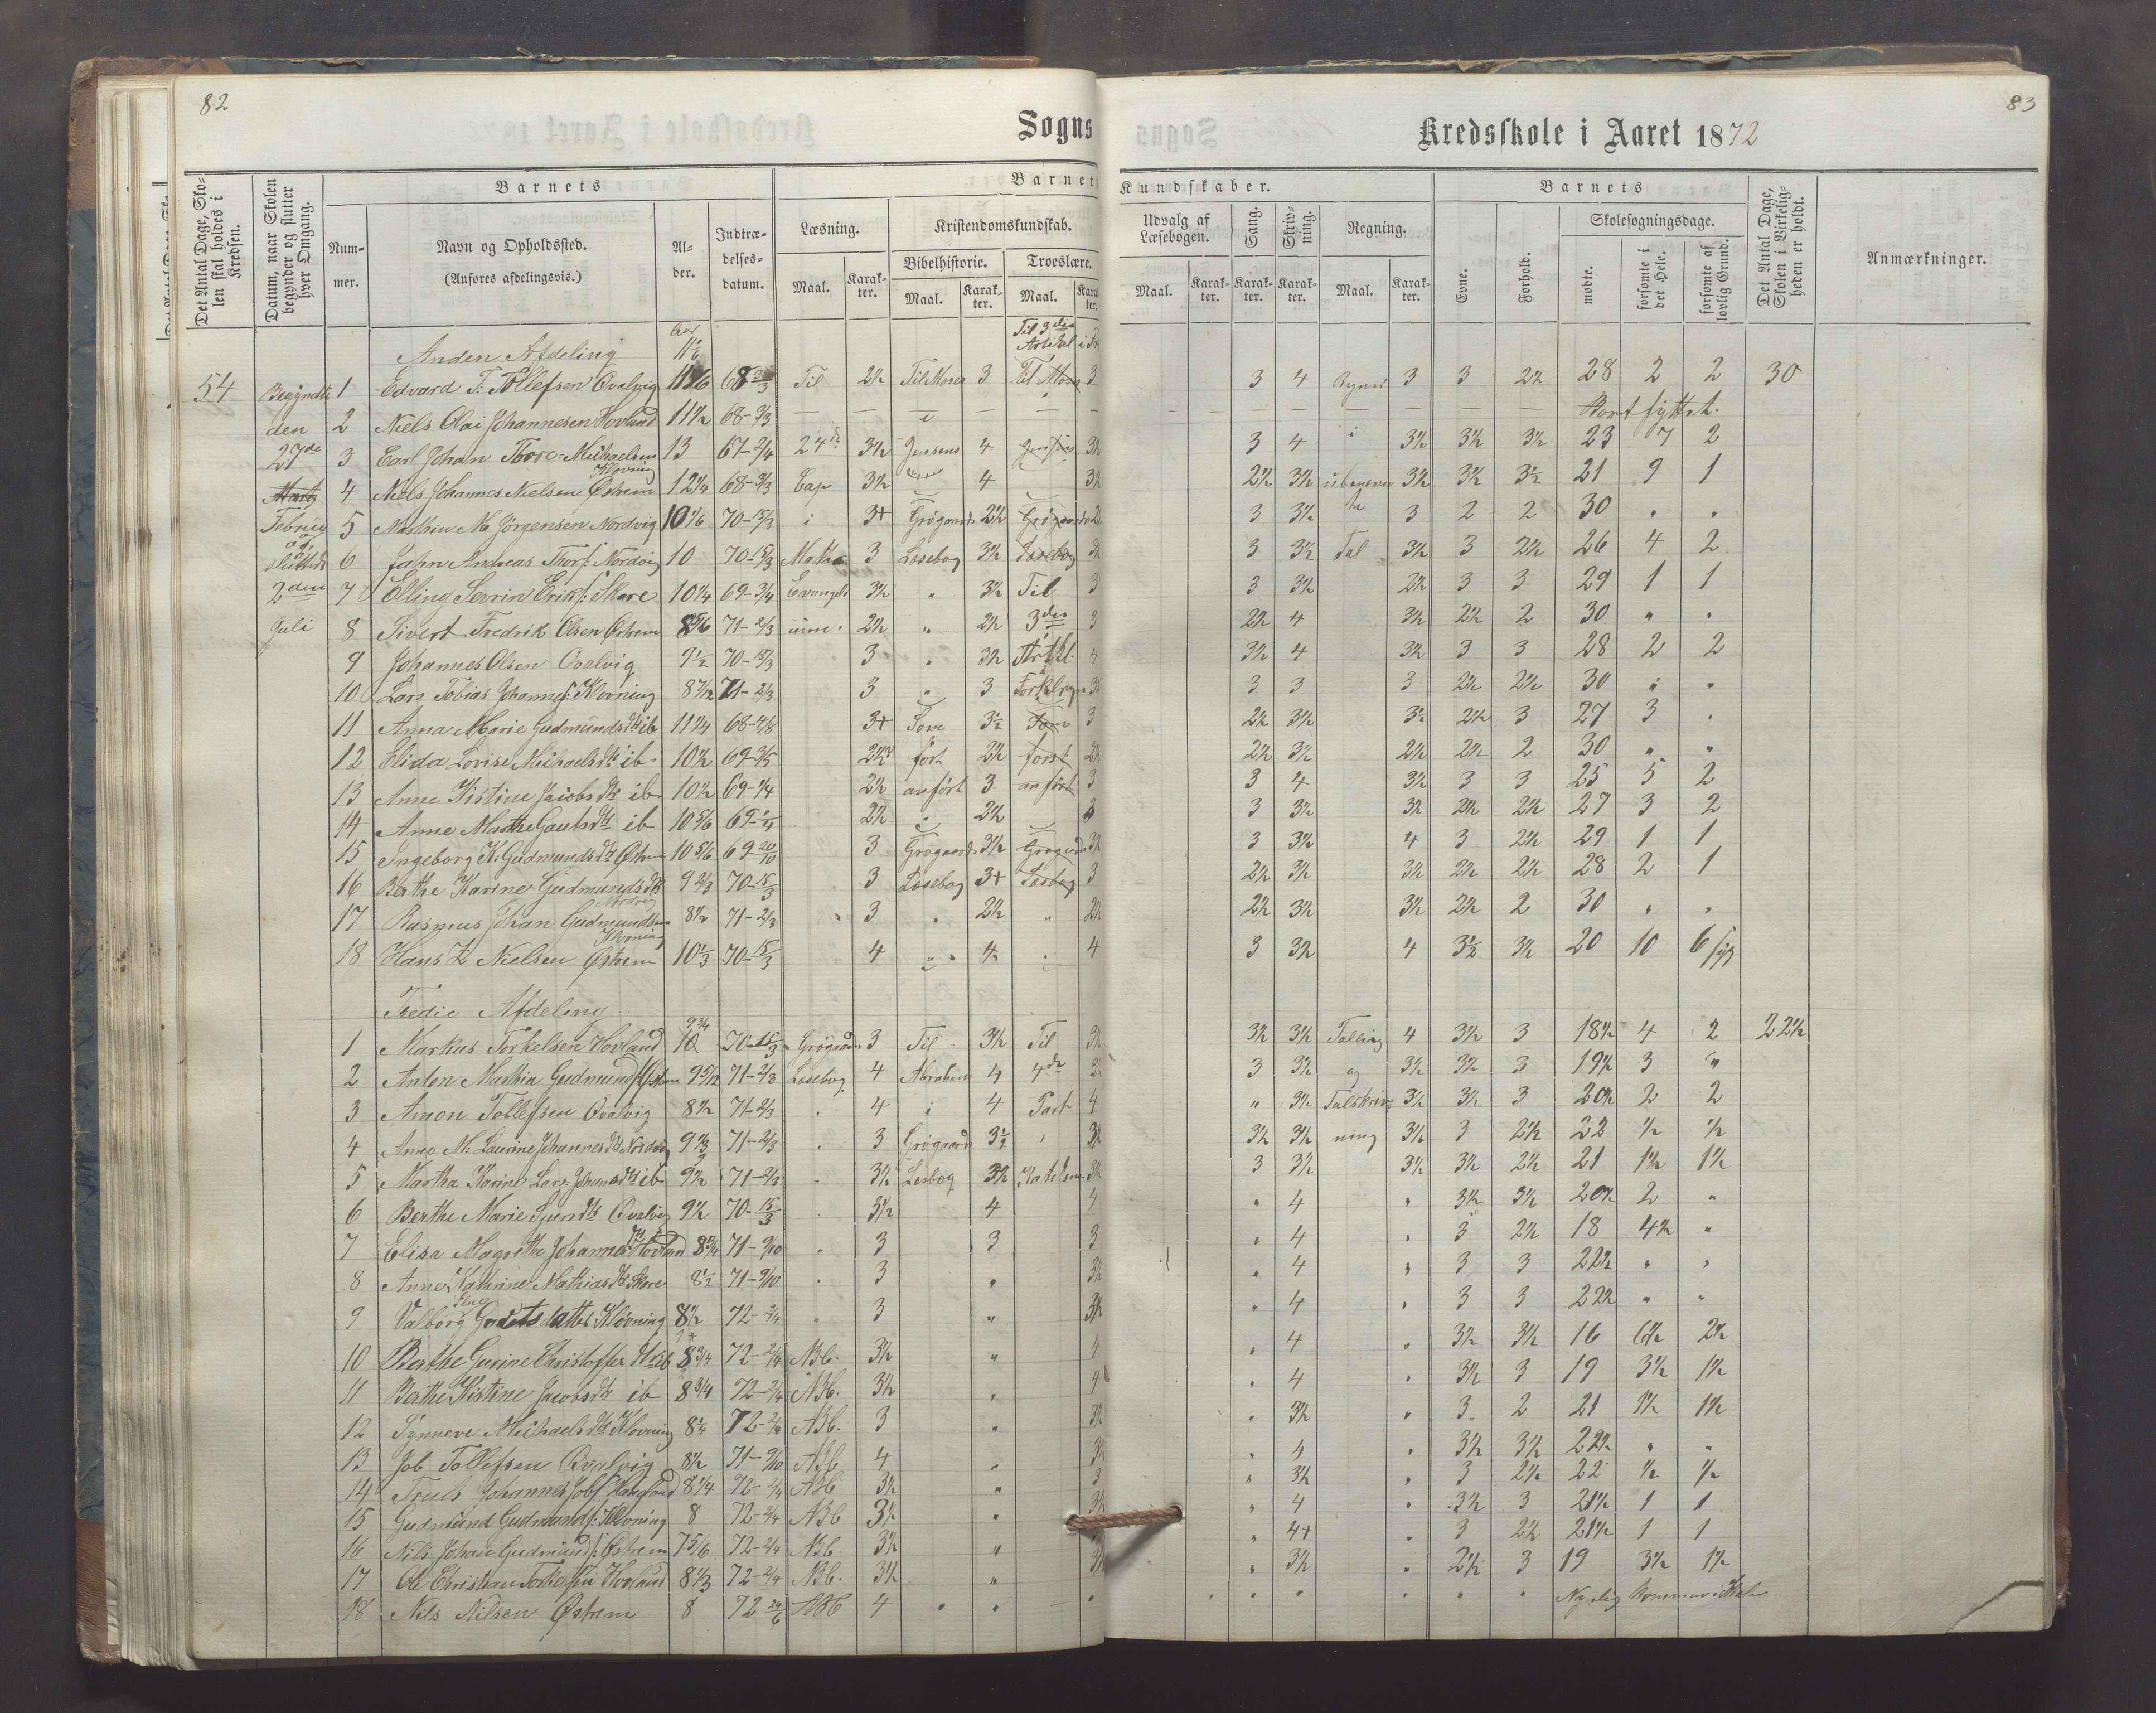 82
Sogns
Kredsskole i Aaret 1872
83
Det Antal Dage, Skolen skal holdes i Kredsen.
Datum, naar Skolen begynder og slutter hver Omgang.
Barnets
Nummer.
Navn og Opholdssted.
(Anføres afdelingsvis.)
Alder.
Indtrædelsesdatum.
Barnets Kundskaber.
Læsning.
Maal.
Karakter.
Kristendomskundskab.
Bibelhistorie.
Maal.
Karakter.
Troeslære.
Maal.
Karakter.
Udvalg af Læsebogen.
Maal.
Karakter.
Sang.
Karakter.
Skrivning.
Karakter.
Regning.
Maal.
Karakter.
Barnets
Evne.
Forhold.
Skolesøgningsdage.
mødte.
forsømte i det Hele.
forsømte af lovlig Grund.
Det Antal Dage, Skolen i Virkeligheden er holdt.
Anmærkninger.
Anden Afdeling
Til 3die Artikel
54 Begyndte 1 Edvard T. Tollefsen Qvalvig 68 Til 2½ Til Moses 3 Til Mose 3 3 4 3 3 2½ 28 2 2 30
den 2 Niels Olai Johannesen Hovland 11½ 68-3/3 Bortflyttet.
27de 3 Carl Johan Michaelsen Klovning 13 67-2/4 24de 3½ Jensens 4 3 4 i 3½ 3½ 3½ 23 7 2
4 Niels Johannes Nielsen Østrem 12¼ 68-3/3 Cap 3½ 4 2½ 3½ 3½ 3½ 3½ 21 9 1
5 Mathin M Jörgensen Nordvig 10 1/6 70-15/3 i 3+ Grögaards 2½ Grögaards 3 3½ 3 2 2 30 " "
6 Jahn Andreas Thors: Nordvig 10 70-15/3 Mathæ 3 Læsebog 3½ Læsebog 3 3½ Tal 3½ 3 2½ 26 4 2
2den 7 Elling Sevrin Eriks: Skare 10¼ 69-3/4 Evangeli 3½ " 3½ Til 3 3 3½ 2½ 3 3 29 1 1
Juli 8 Sivert Fredrik Olsen Østrem 8 5/6 71-2/3 2½ " 2½ 3die 3 2½ 4 3½ 2½ 2 30 " "
9 Johannes Olsen Qvalvig 9½ 70-15/3 3 " 3½ Artkl. 4 3½ 4 3½ 3 3 28 2 2
10 Lars Tobias Johannes: Klovning 8 7/12 71-2/3 3 " 3 3 3 3 2½ 2½ 30 " "
11 Anna Marie Gudmundsdtr ib 11¼ 68 3+ Som 3½ Som 3 2½ 3½ 3½ 2½ 3 27 3 .
12 Elida Lovise Michaelsdtr ib. 10½ 69-3/5 2½ ført 2½ først 2½ 2½ 3½ 2½ 2½ 2 30 " "
13 Anne Kistine Jacobsdtr ib 10½ 69-1/4 2½ anført 3 anført 3 3 4 3½ 3 3 25 5 2
14 Anne Marthe Gautsdtr ib 10 5/6 69-1/4 2½ " 2½ 3 3½ 3½ 2½ 2½ 27 3 2
15 Ingeborg K: Gudmundsdtr Østrem 10 5/6 69-20/10 3 Grögaards 3½ 3½ 3 3½ 4 3 2½ 29 1 1
16 Berthe Karine Gudmundsdtr Nordvig 9 2/3 70-15/3 3 Læsebog 3+ Læsbog 3 2½ 3½ 3½ 2½ 2½ 28 2 1
17 Rasmus Johan Gudmundsen Klovning 8½ 71-2/3 3 " 2½ " 2½ 2½ 3½ 3½ 2½ 2 30 " "
18 Hans Z Nielsen Østrem 10⅓ 70-15/3 4 " 4 . 4 3 3½ 4 3½ 3½ 20 10 6 syg
Tredie Afdeling
1 Markus Torkelsen Hovland 70-15/3 Grögaards 3 Til 3½ Til 3½ 3½ 3½ Talling 4 3½ 3 18½ 4 2 22½
2 Anton Mathin Gudmunds: Østrem 9 5/12 71-2/3 Læsebog 4 Abraham 4 4de 3 3½ og 3½ 3½ 3 19½ 3 "
3 Amon Tollefsen Qvalvig 8½ 71-2/3 . 4 i 4 Part 4 " 3½ Talskriv= 3½ 3½ 3 20½ 2 2
4 Anne M: Laurine Johannesdtr Nordvig 9⅓ 71-2/3 3 Grögaards 3½ 3½ 3½ 3½ ning 3½ 3 2½ 22 ½ ½
5 Martha Karine Lars: Johansdtr ib 9½ 71-2/3 3½ Lesbog 3½ 3 3½ 3½ 3½ 2½ 21 1½ 1½
6 Berthe Marie Qvalvig 9½ 70-15/3 3½ 4 4 " 4 " 3½ 3½ 20½ 2 "
7 Elisa Magrethe Johannesdtr Hovland 8¾ 71-9/10 3 3 3 " 4 " 3 2½ 18 4½ "
8 Anne Kathrine Mathiasdtr Skare 8½ 71-9/10 3 " 3½ " 4 " 3 3 22½ " "
9 Valborg Gautsdatter Kløvning 8½ 72-2/4 3 " 3½ " 4 " 3 3 22½ " "
10 Berthe Gurine Christoffersdtr ib 8¾ 72-2/4 ABC. 3½ " 4 " 4 " 3½ 3½ 16 6½ 2½
11 Berthe Kistine Jacobsdtr ib 8¾ 72-2/4 ABC. 3½ " 4 " 4 " 3½ 3 19 3½ 1½
12 Synneve Michaelsdtr Klovning 72-2/4 ABC. 3 " 3½ " 3½ " 3 2 21 1½ 1½
13 Job Tollefsen Qvalvig 8½ 71-9/10 ABC 4 " 3½ " 4 " 3½ 3½ 22½ " "
14 Truls Johannes Jobs: Haugland 8¼ 72-2/4 ABC 3½ " 3 " 3½ " 3 2½ 22 ½ ½
15 Gudmund Gudmunds: Klovning 8 72-2/4 ABC 3½ " 3½ " 4 " 3½ 3 21½ 1 1
16 Nils Johan Gudmunds: Østrem 7 5/6 72-2/4 ABC. 3½ " " 4+ " 3 2½ 21½ 1 1
17 Ole Christian Torkelsen Hovland 8⅓ 72-2/4 ABC. 3½ " 3½ " 3½ " 2½ 3 19 3½ 1½
18 Nils Nilsen Østrem 8 72 24/6 ABC 4 " " " " " " " " Nylig kommen i Skolen